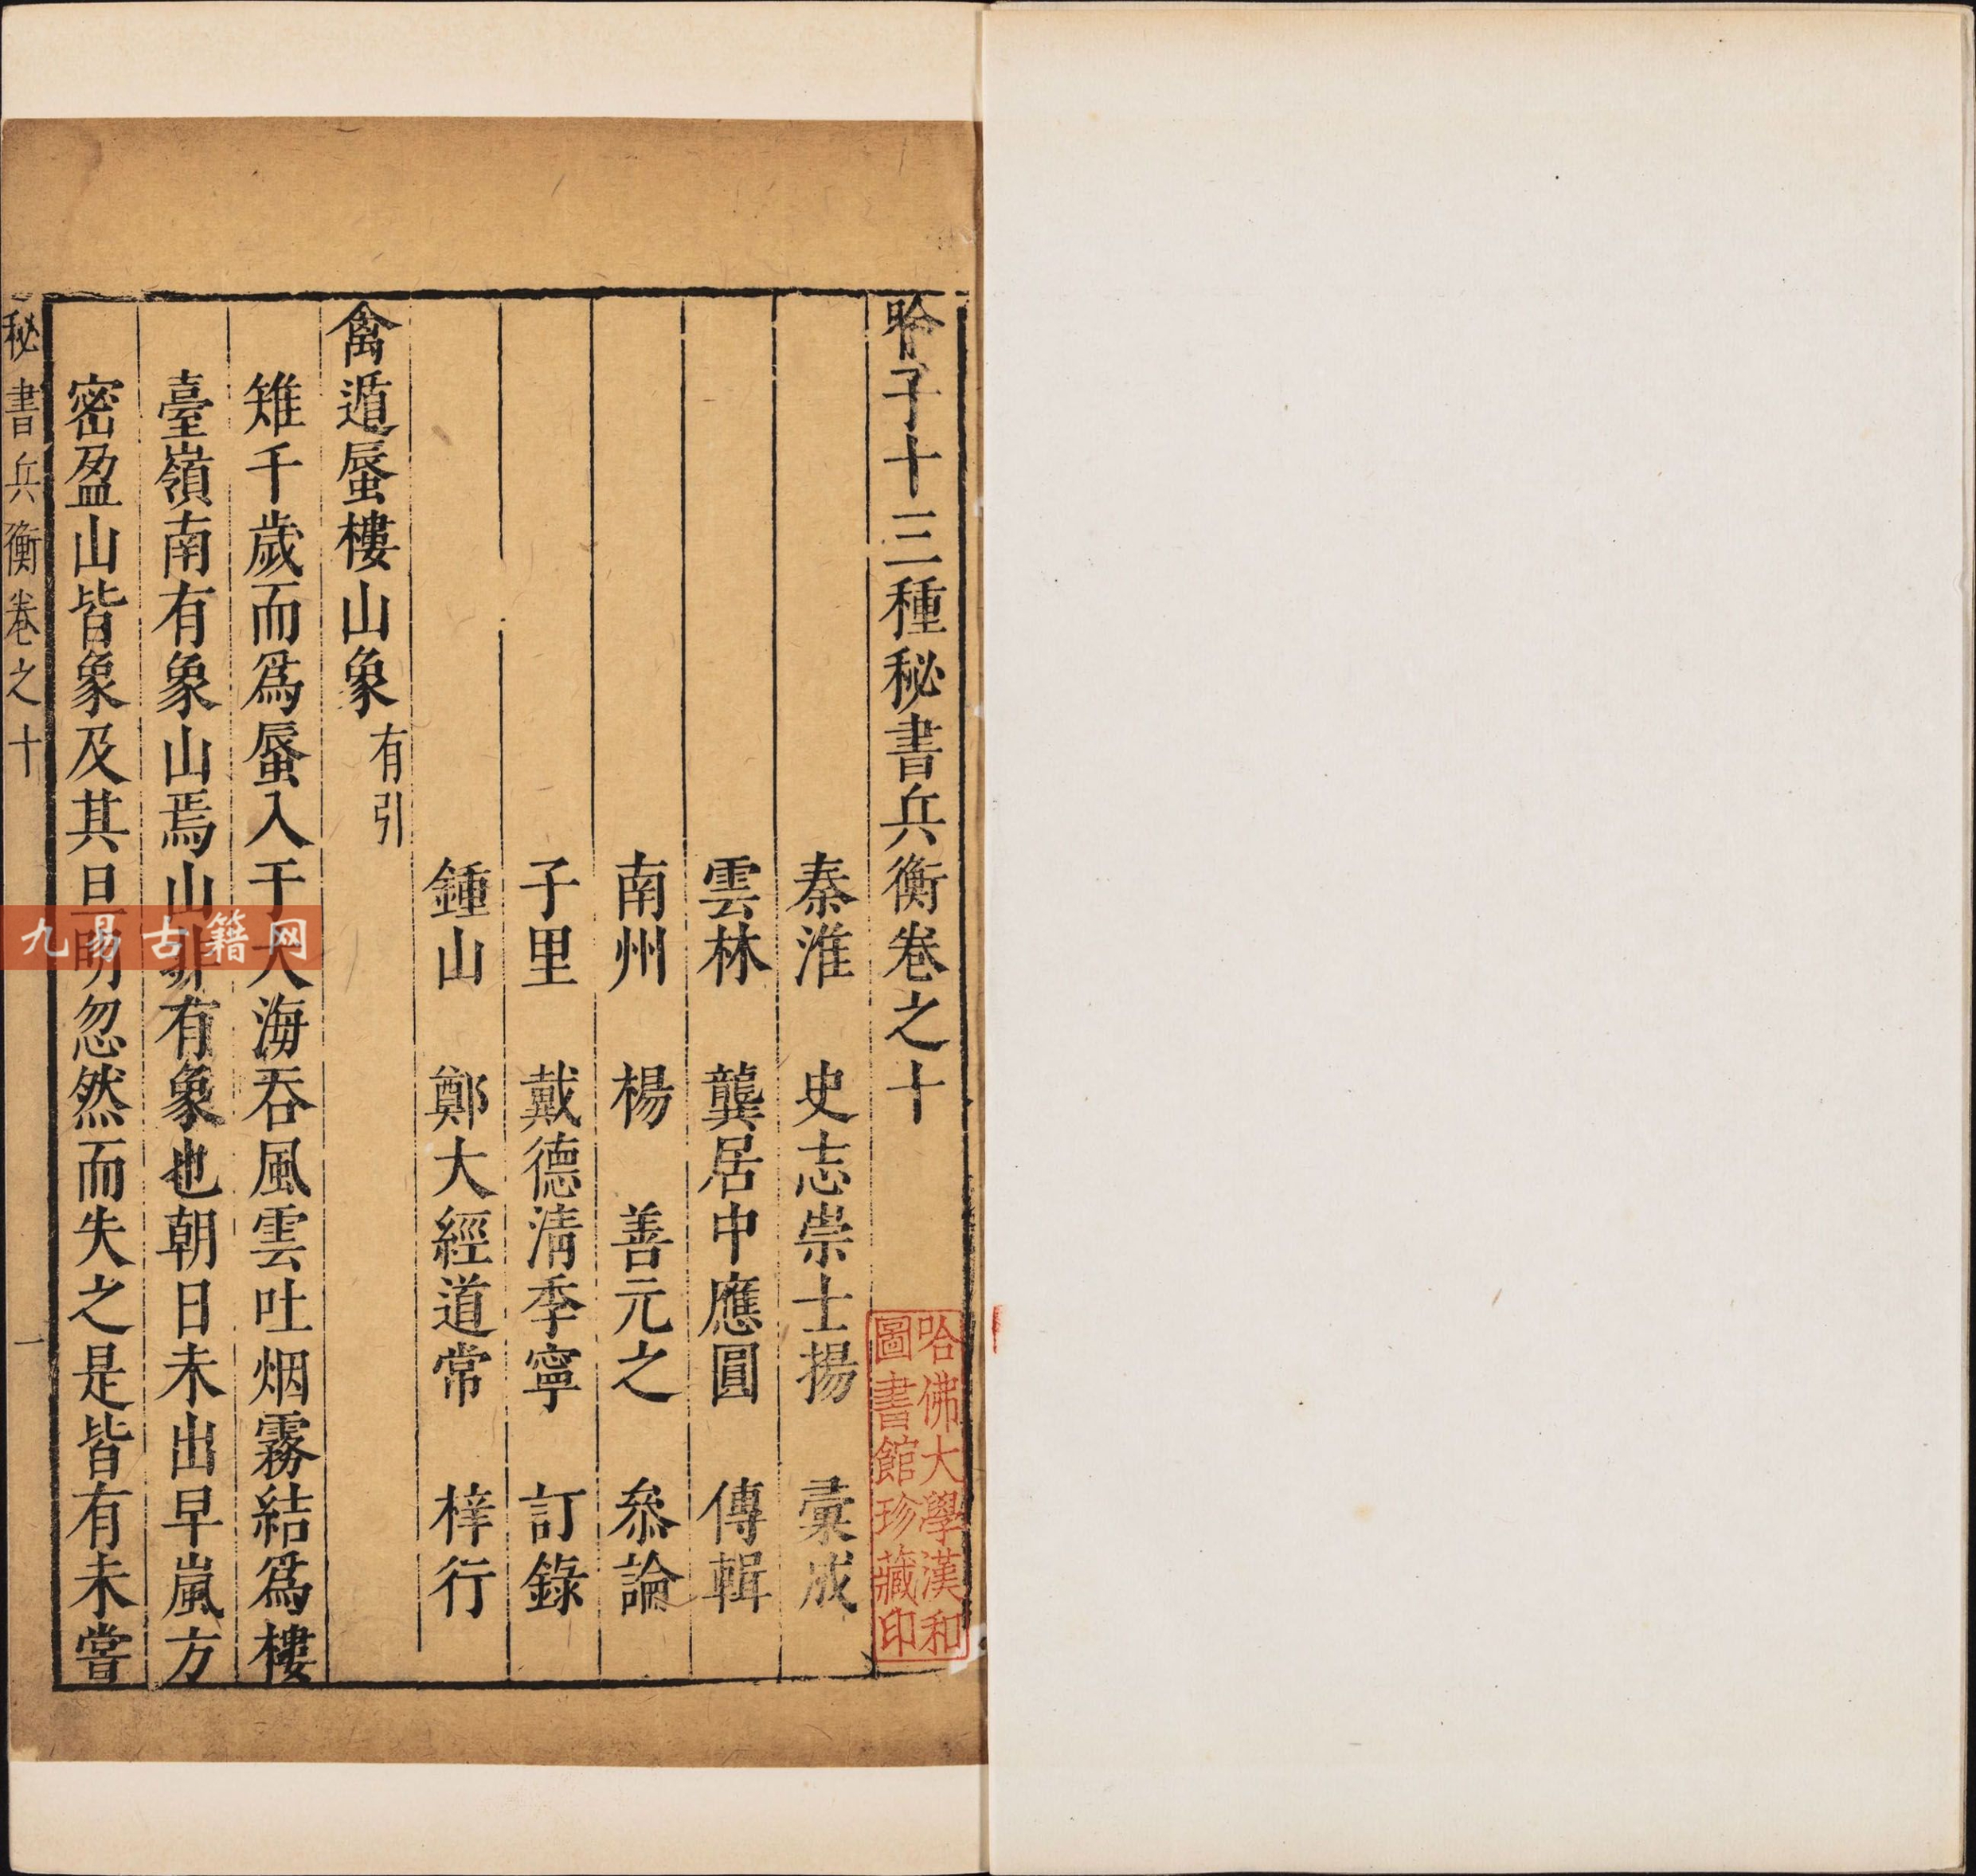 子十三種秘書兵衡卷之十
秦淮 史志崇士揚 彙成
雲林 龔居中應圓 傳輯
南州 楊 善元之 叅論
子里 戴德淸季寧 訂錄
鍾山 鄭大經道常 梓行
禽遁蜃樓山象 有引
雉千歲而爲蜃入于大海吞風雲吐烟霧結爲樓
臺嶺南有象山焉山非有象也朝日未出早嵐方
密盈山皆象及其旦明忽然而失之是皆有未嘗
秘書兵衡卷之十
一
哈佛大學漢和
圖書館珍藏印
九易古籍网